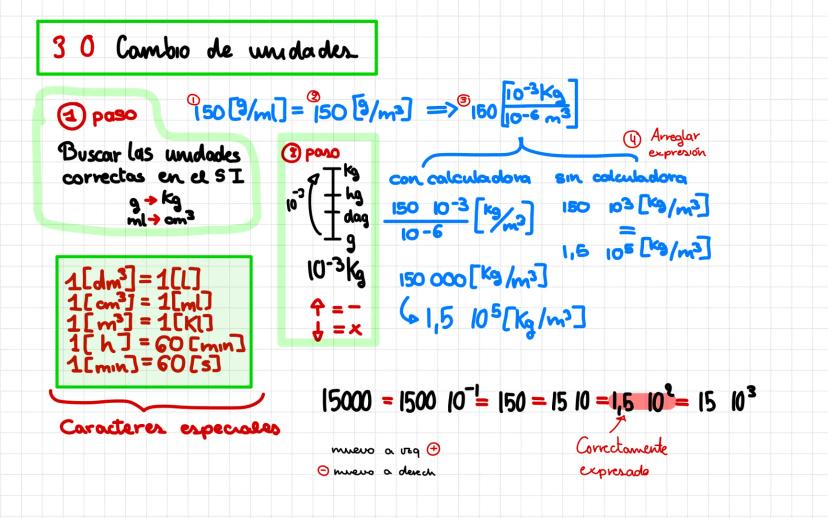 3 0 Cambio de unidades
① paso
Buscar las unidades
correctas en el S I
g → Kg
ml → cm³
① 150 [g/ml] = ② 150 [g/m³] => ③ 150 [10⁻³Kg / 10⁻⁶ m³]
④ Arreglar
expresión
② paso
Kg
hg
dag
g
10⁻³
10⁻³Kg
↑ = -
↓ = x
con calculadora
150 10⁻³ / 10⁻⁶ [Kg/m³]
150 000 [Kg/m³]
1,5 10⁵ [Kg/m³]
sin calculadora
150 10³ [Kg/m³]
=
1,5 10⁵ [Kg/m³]
1[dm³] = 1[L]
1[cm³] = 1[ml]
1[m³] = 1[Kl]
1[h] = 60[min]
1[min] = 60[s]
Caracteres especiales
15000 = 1500 10⁻¹ = 150 = 15 10 = 1,5 10² = 15 10³
Correctamente
expresado
muevo a izq ⊕
⊖ muevo a derech